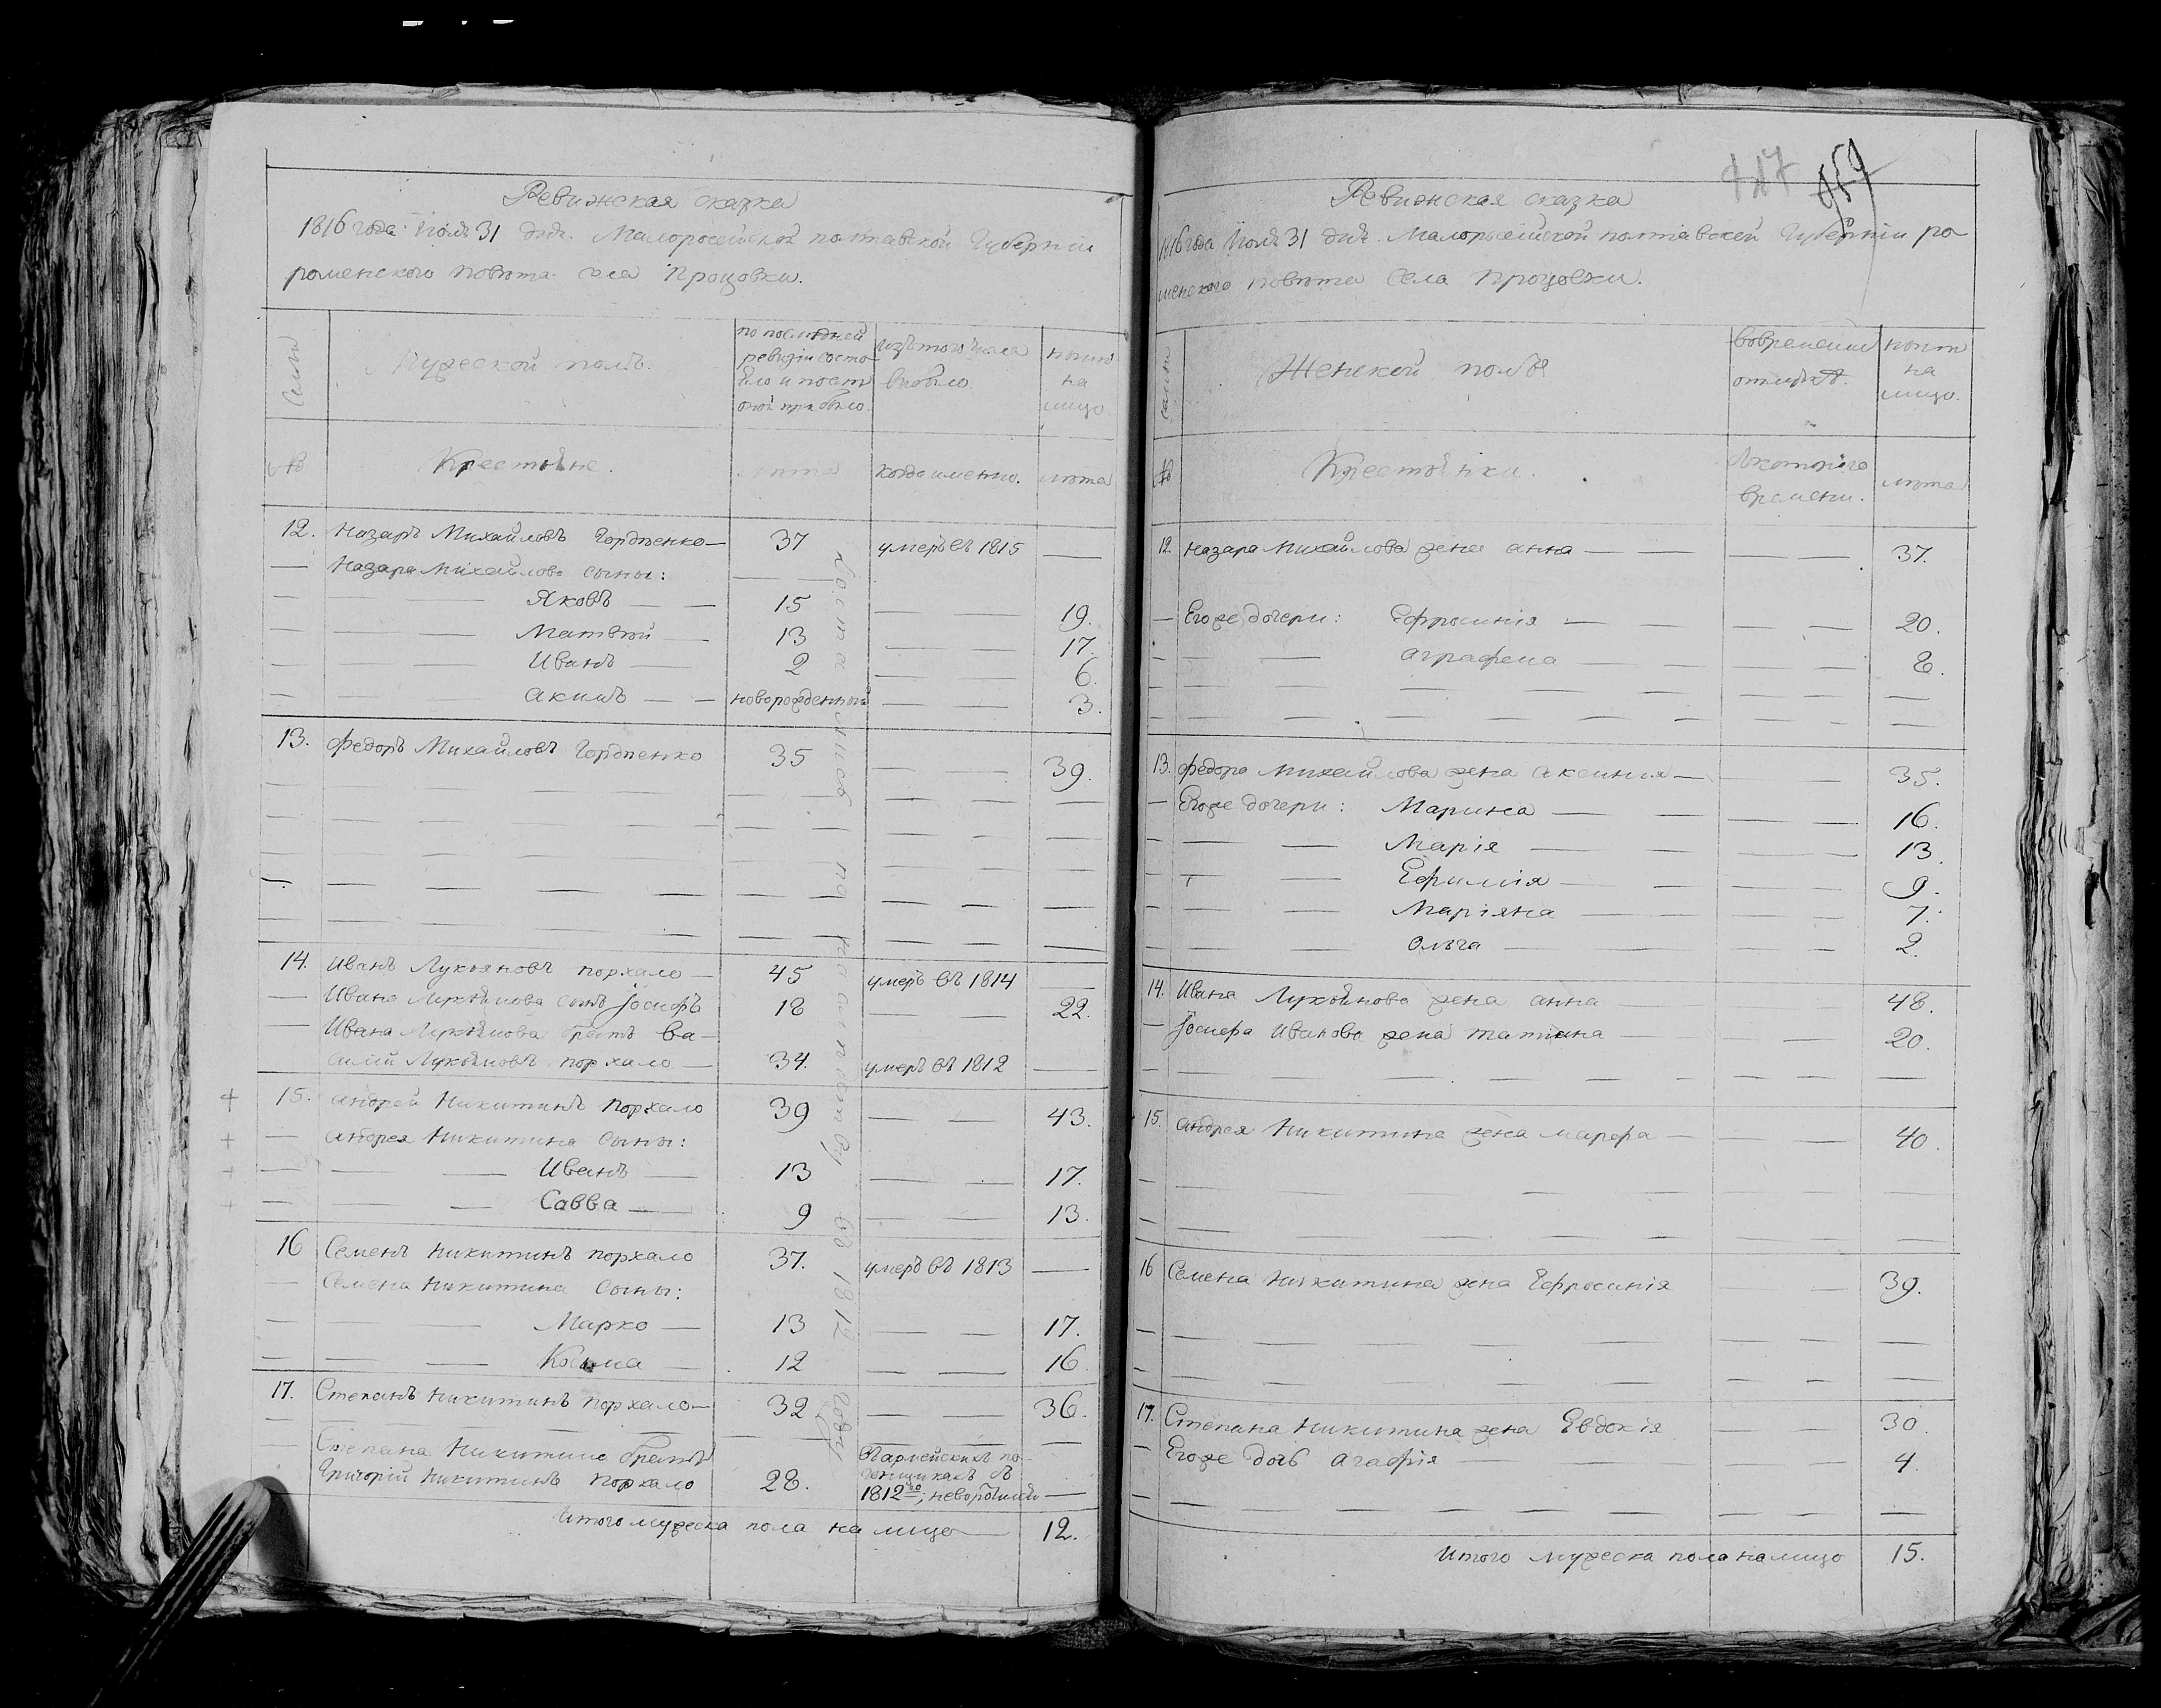 Ревижская сказка
1816 года Июля 31 дня. Малоросейской полтавской Губернии
роменского повѣта села Процовки.
Семьи
Мужеской полъ.
по последней
ревизіи состо
яло и после
оной прибыло
изъ того числа
выбыло
ныне
на
лицо.
№
Крестьяне.
лѣта
когда именно.
лѣта
12. Назаръ Михайловъ Гордѣенко — 37 умеръ въ 1815 —
— Назара Михайлова сыны:
Яковъ — 15 — 19.
Матвѣй — 13 — 17.
Иванъ — 2 — 6.
Акимъ — новорожденный — 3.
13. Федоръ Михайловъ Гордѣенко 35 — 39.
14. Иванъ Лукьяновъ порхало — 45 умеръ въ 1814 —
— Ивана Лукьянова сынъ Іосифъ 18 — 22.
— Ивана Лукьянова братъ Ва-
силій Лукьяновъ порхало — 34. умеръ въ 1812 —
+ 15. Андрей Никитинъ порхало 39 — 43.
+ — Андрея Никитина сыны:
+ — Иванъ — 13 — 17.
+ — Савва — 9 — 13.
16 Семенъ Никитинъ порхало 37. умеръ въ 1813 —
— Семена Никитина сыны:
Марко — 13 — 17.
Косма — 12 — 16.
17. Степанъ Никитинъ порхало — 32 — 36.
— Степана Никитина братъ
Григорій Никитинъ порхало 28.
1812го;
—
Итого мужеска пола на лицо — 12.
въ 1812 году
Ревижская сказка
1816 года Июля 31 дня. Малоросейской полтавской Губернии ро-
менского повѣта Села Процовки.
Семьи
Женской полъ
вовременной
отлучкѣ.
ныне
на
лицо.
№
Крестьянки.
Скоторого
времени.
лѣта
12. Назара Михайлова жена Анна — 37.
— Егоже дочери: Ефросинія — 20.
Аграфена — 8.
13. Федора Михайлова жена Аксинія — 35.
— Егоже дочери: Марина — 16.
Марія — 13.
Ефимія — 9.
Маріяна — 7.
Ольга — 2.
14. Ивана Лукьянова жена Анна — 48.
— Іосифа Иванова жена Татіана — 20.
15. Андрея Никитина жена Марфа — 40.
16 Семена Никитина жена Ефросинія — 39.
17. Степана Никитина жена Евдокія — 30.
— Егоже дочь Агафія — 4.
Итого мужеска пола налицо 15.